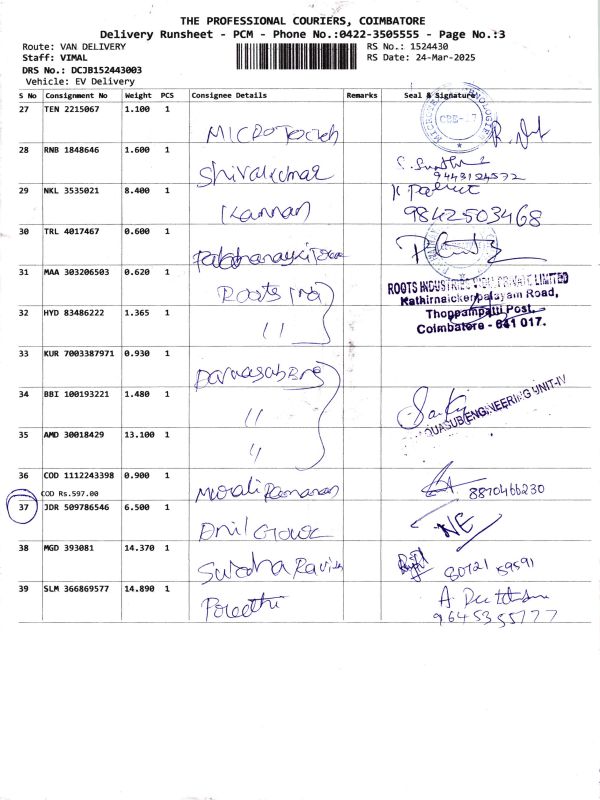 THE PROFESSIONAL COURIERS, COIMBATORE
Delivery Runsheet - PCM - Phone No.:0422-3505555 - Page No.:3
Route: VAN DELIVERY RS No.: 1524430
Staff: VIMAL RS Date: 24-Mar-2025
DRS No.: DCJB152443003
Vehicle: EV Delivery
S No Consignment No Weight PCS Consignee Details Remarks Seal & Signature
27 TEN 2215067 1.100 1
28 RNB 1848646 1.600 1 Shivakumar
9443124572
29 NKL 3535021 8.400 1 Kannan
9842503468
30 TRL 4017467 0.600 1
31 MAA 303206503 0.620 1 Roots Ind
ROOTS INDUSTRIES INDIA PRIVATE LIMITED
Kathirnaickenpalayam Road,
32 HYD 83486222 1.365 1 "
Thoppampatti Post,
Coimbatore - 641 017.
33 KUR 7003387971 0.930 1
34 BBI 100193221 1.480 1 "
AQUASUB ENGINEERING UNIT-IV
35 AMD 30018429 13.100 1 "
36 COD 1112243398 0.900 1 Murali Ramanan 8870466230
COD Rs.597.00
37 JDR 509786546 6.500 1 Anil NE
38 MGD 393081 14.370 1 80721 59591
39 SLM 366869577 14.890 1 Preethi
9645355777